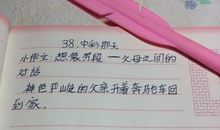 38.中彩那天
小作文:想象片段——父母之间的
对话
神色严峻的父亲开着奔马包车回
到家。